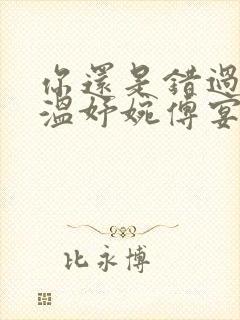 你還是錯過
溫妤婉傅宴
比永博